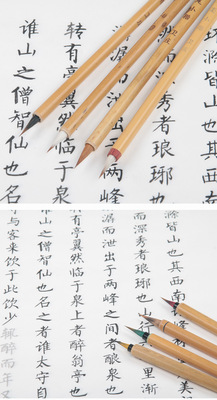 滁皆山也
秀者琅琊也
而泄出于两峰
转有亭翼然临于泉
谁山之僧智仙也名
滁皆山也其西南
美
而深秀者琅琊也山行
里渐
潺而泄出于两峰之间者酿泉也
有亭翼然临于泉上者醉翁亭也
山之僧智仙也名之者谁太守自
与客来饮于此饮少辄醉而年又